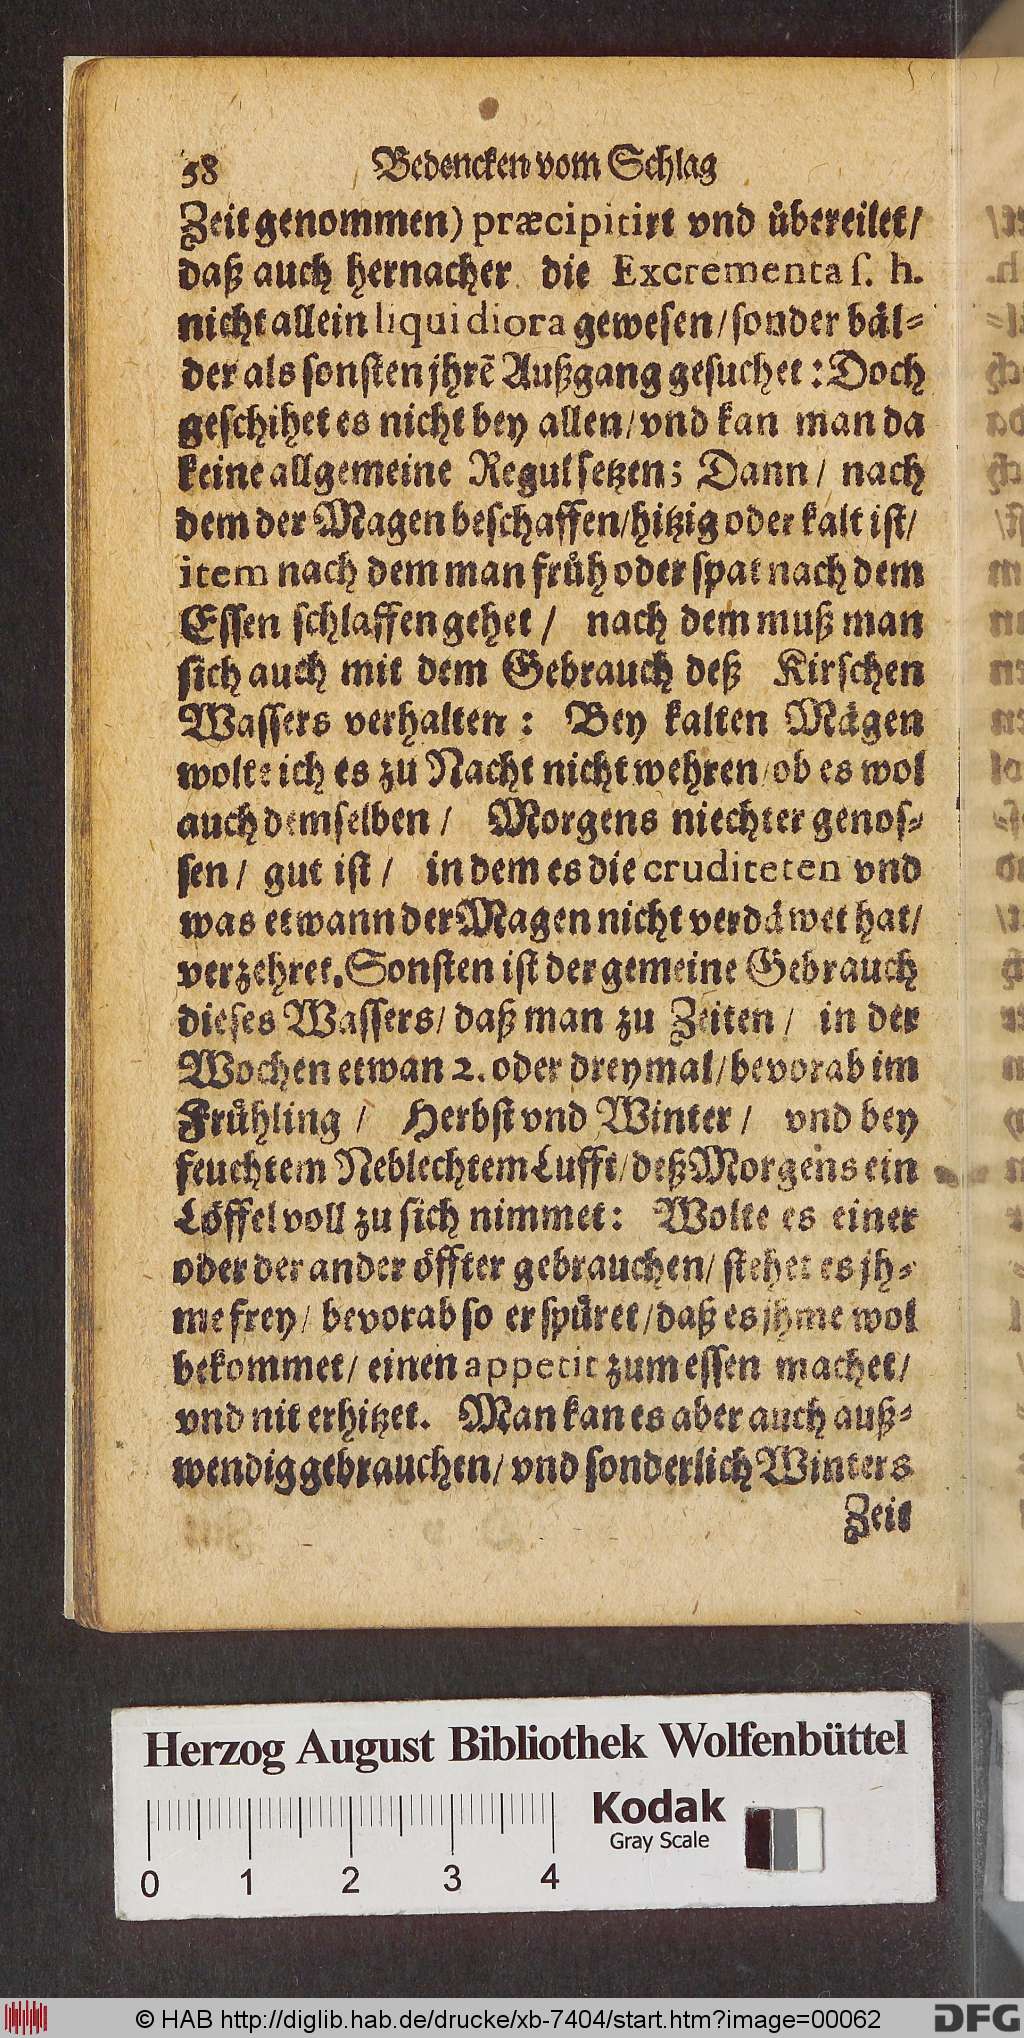 58 Bedencken vom Schlag
Zeit genommen) præcipitirt vnd uͤbereilet/
daß auch hernacher die Excrementa ſ. h.
nicht allein liquidiora geweſen/ſonder baͤl-
der als ſonſten jhrẽ Außgang geſuchet: Doch
geſchihet es nicht bey allen/vnd kan man da
keine allgemeine Regul ſetzen; Dann/ nach
dem der Magen beſchaffen/hitzig oder kalt iſt/
item nach dem man fruͤh oder ſpat nach dem
Eſſen ſchlaffen gehet/ nach dem muß man
ſich auch mit dem Gebrauch deß Kirſchen
Waſſers verhalten: Bey kalten Maͤgen
wolte ich es zu Nacht nicht wehren/ob es wol
auch demſelben/ Morgens niechter genoſ-
ſen/ gut iſt/ in dem es die cruditeten vnd
was etwann der Magen nicht verdaͤwet hat/
verzehret. Sonſten iſt der gemeine Gebrauch
dieſes Waſſers/daß man zu Zeiten/ in der
Wochen etwan 2. oder drey mal/bevorab im
Fruͤhling/ Herbſt vnd Winter/ vnd bey
feuchtem Neblechtem Lufft/deß Morgens ein
Loͤffel voll zu ſich nimmet: Wolte es einer
oder der ander oͤffter gebrauchen/ ſtehet es jh-
me frey/ bevorab ſo er ſpuͤret/daß es jhme wol
bekommet/ einen appetit zum eſſen machet/
vnd nit erhitzet. Man kan es aber auch auß-
wendig gebrauchen/ vnd ſonderlich Winters
Zeit
Herzog August Bibliothek Wolfenbüttel
Kodak
Gray Scale
0 1 2 3 4
© HAB http://diglib.hab.de/drucke/xb-7404/start.htm?image=00062
DFG